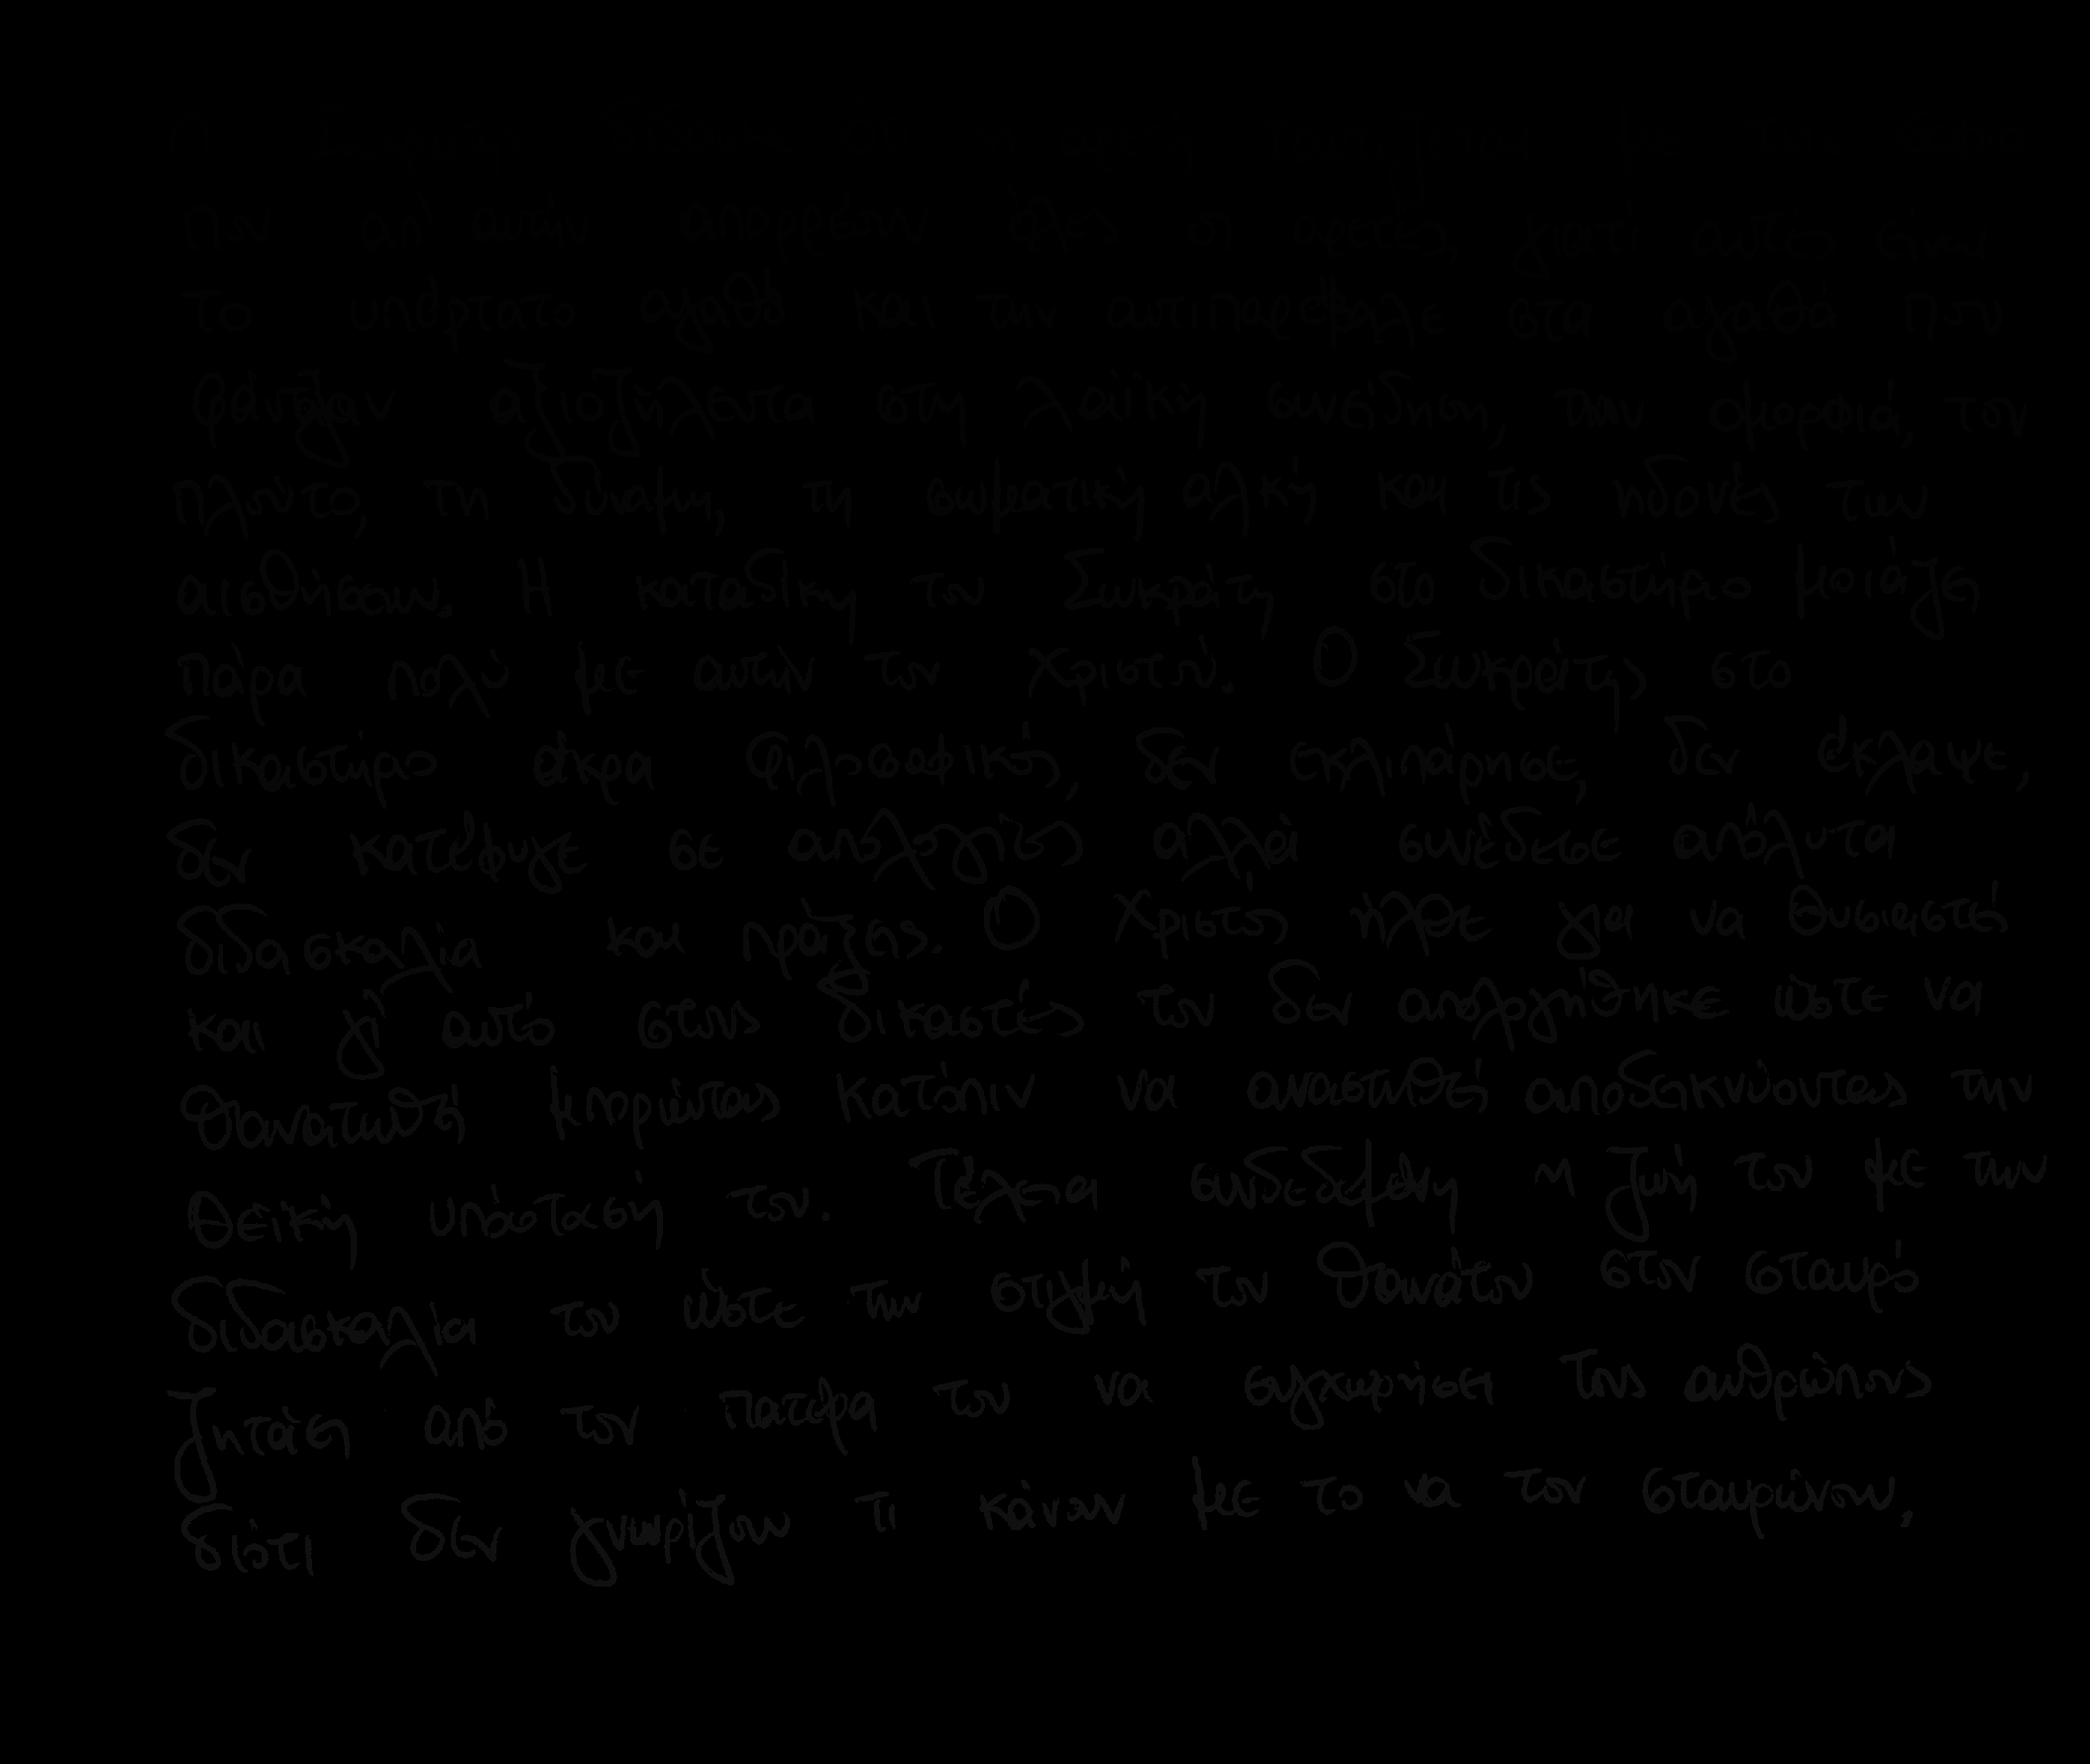 Ο Σωκράτης δίδασκε ότι η αρετή ταυτίζεται με την
που απ' αυτήν απορρέουν όλες οι αρετές, γιατί αυτές είναι
το υπέρτατο αγαθό και την αντιπαρέβαλε στα αγαθά που
φάνταζαν αξιοζήλευτα στη λαϊκή συνείδηση, την ομορφιά, τον
πλούτο, τη δύναμη, τη σωματική αλκή και τις ηδονές των
αισθήσεων. Η καταδίκη του Σωκράτη στο δικαστήριο μοιάζει
πάρα πολύ με αυτήν του Χριστού. Ο Σωκράτης στο
δικαστήριο άκρα φιλοσοφικός, δεν εκλιπάρησε, δεν έκλαψε,
δεν κατέφυγε σε απολογίες αλλά συνέδεσε απόλυτα
διδασκαλία και πράξεις. Ο Χριστός ήλθε για να θυσιαστεί
και γι' αυτό στους δικαστές του δεν απολογήθηκε ώστε να
θανατωθεί μπορώντας κατόπιν να αναστηθεί αποδεικνύοντας την
θεϊκή υπόστασή του. Τέλεια συνδεδεμένη η ζωή του με την
διδασκαλία του ώστε την στιγμή του θανάτου στον σταυρό
ζητάει από τον πατέρα του να συγχωρήσει τους ανθρώπους
διότι δεν γνωρίζουν τι κάνουν με το να τον σταυρώνουν.